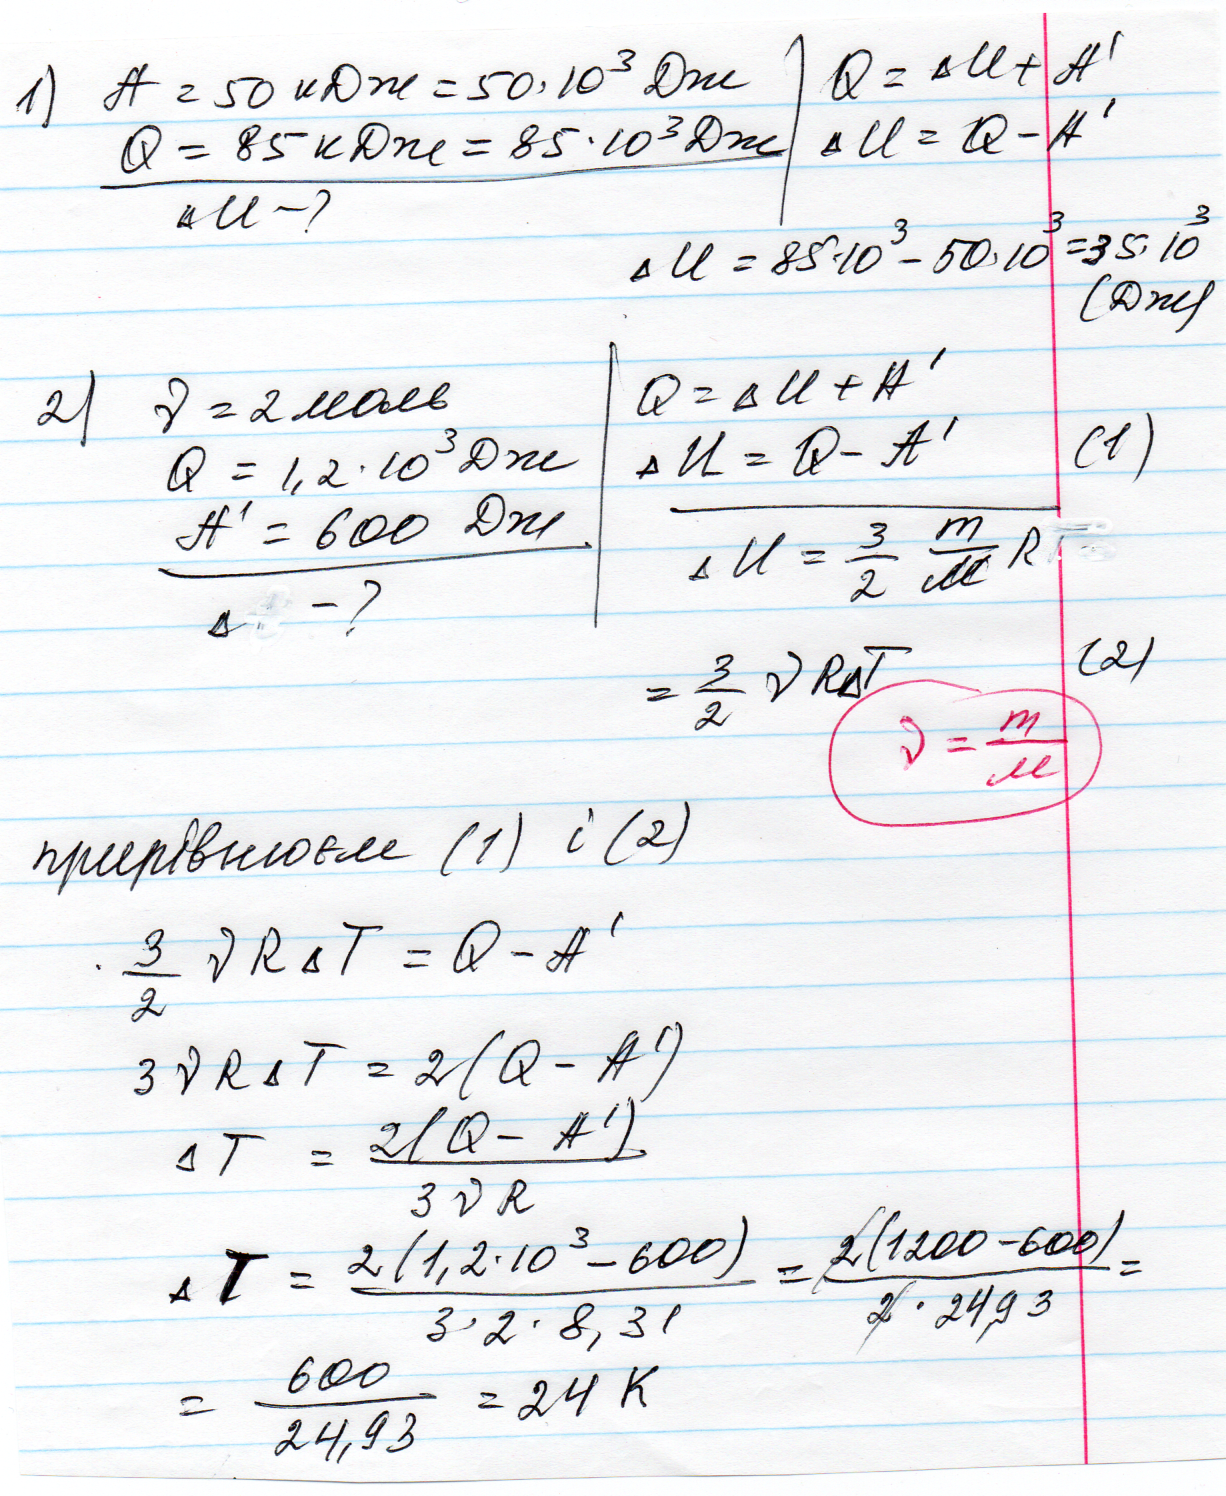 1) A = 50 кДж = 50·10³ Дж
Q = 85 кДж = 85·10³ Дж
ΔU - ?
Q = ΔU + A'
ΔU = Q - A'
ΔU = 85·10³ - 50·10³ = 35·10³
(Дж)
2) ν = 2 моль
Q = 1,2·10³ Дж
A' = 600 Дж
Δ - ?
Q = ΔU + A'
ΔU = Q - A' (1)
ΔU = 3/2 m/M R
= 3/2 νRΔT (2)
ν = m/M
прирівнюєм (1) і (2)
3/2 νRΔT = Q - A'
3νRΔT = 2(Q - A')
ΔT = 2(Q - A') / 3νR
ΔT = 2(1,2·10³ - 600) / 3·2·8,31 = 2(1200 - 600) / 2·24,93 =
= 600 / 24,93 = 24 K